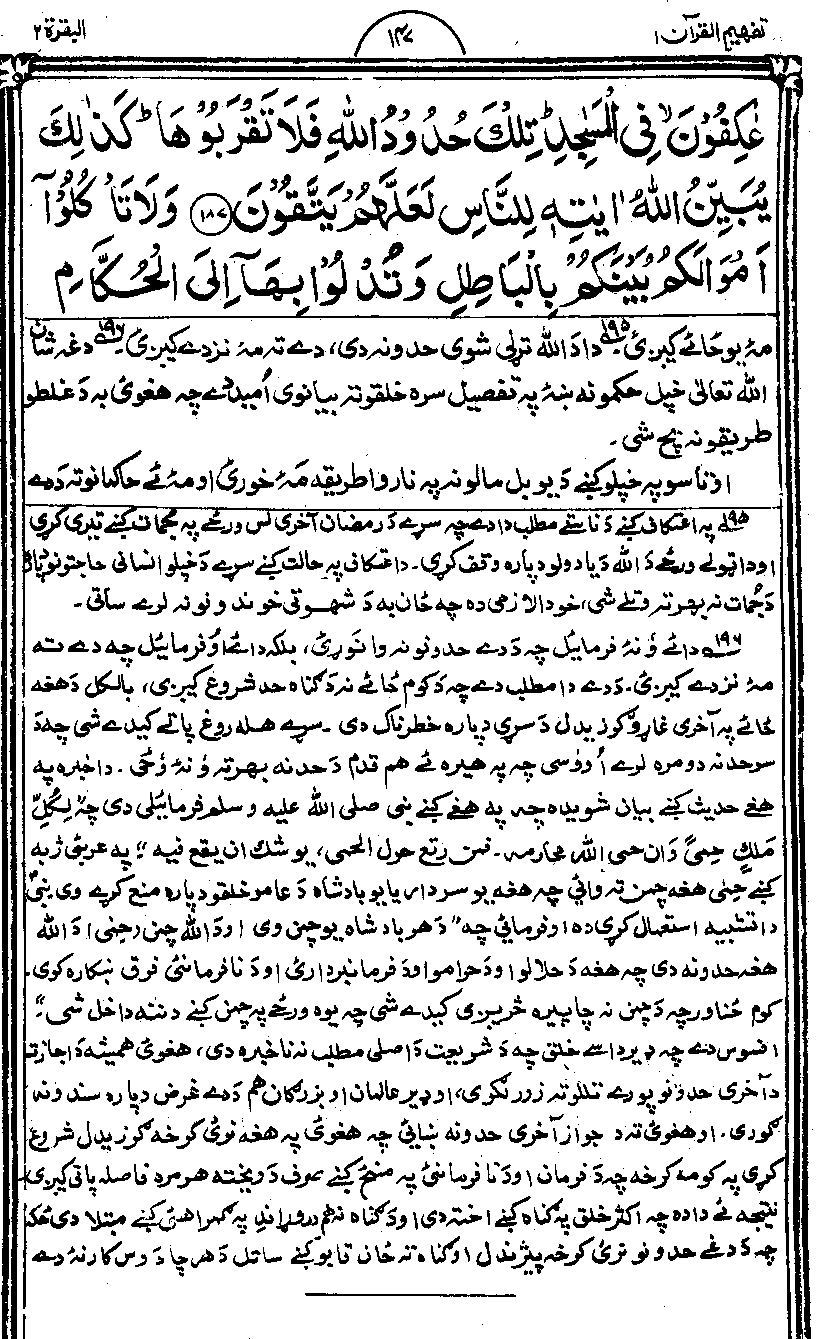 تفهيم القرآن ١
١٤٧
البقرة ٢
عٰكِفُوْنَ ۙ فِى الْمَسٰجِدِ ؕ تِلْكَ حُدُوْدُ اللّٰهِ فَلَا تَقْرَبُوْهَا ؕ كَذٰلِكَ
يُبَيِّنُ اللّٰهُ اٰيٰتِهٖ لِلنَّاسِ لَعَلَّهُمْ يَتَّقُوْنَ ١٨٧ وَلَا تَاْكُلُوْٓا
اَمْوَالَكُمْ بَيْنَكُمْ بِالْبَاطِلِ وَتُدْلُوْا بِهَآ اِلَى الْحُكَّامِ
مهٔ يو ځائے کيږئ ١٩٥ۦ دا دَ الله تړلى شوى حدونه دى، دے ته مهٔ نزدے کيږئ ١٩٦ۦ دغه شان
الله تعالىٰ خپل حکمونه ښهٔ په تفصيل سره خلقو ته بيانوى اُميد دے چه هغوئ به دَ غلطو
طريقو نه بچ شى۔
او تاسو په خپلو کښے دَ يو بل مالونه په ناروا طريقه مهٔ خورئ او مهٔ ئے حاکمانو ته دَدے
١٩٥ په اعتکاف کښے دَ ناستے مطلب دا دے چه سړے دَ رمضان آخرى لس ورځے په جُمات کښے تيرى کړى
او دا ټولے ورځے دَ الله دَ ياد دَپاره وقف کړى۔ دا عتکاف په حالت کښے سړے دَ خپلو انسانى حاجتونو دَپاره
دَ جُمات نه بهر ته وتلے شى، خو دا لازمى ده چه ځان به دَ شهوتى خوندونو نه لرے ساتى۔
١٩٦ دائے وَ نهٔ فرمائيل چه دَدے حدونو نه وانوړئ، بلکه دائے اوفرمائيل چه دے ته
مهٔ نزدے کيږئ۔ دَدے دا مطلب دے چه دَ کوم ځائے نه دَ ګناه حد شروع کيږى، بالکل دَ هغه
ځائے په آخرى غاړو ګرزيدل دَ سړى دپاره خطرناک دى۔ سړے هله روغ پاتے کيدے شى چه دَ
سرحد نه دومره لرے اُوسى چه په هيره ئے هم قدم دَ حد نه بهر ته وَ نهٔ وځى۔ دا خبره په
هغے حديث کښے بيان شويده چه په هغے کښے نبى صلى الله عليه وسلم فرمائيلى دى چه "لِكُلِّ
مَلِكٍ حِمىً وَان حمى الله محارمه۔ فمن رتع حول الحمى، يوشك ان يقع فيه" په عربئ ژبه
کښے حِمىٰ هغه چمن ته وائى چه هغه يو سردار يا يو بادشاه دَ عامو خلقو دپاره منع کړے وى نبىؐ
دا تشبيه استعمال کړى ده او فرمائى چه "دَ هر بادشاه يو چمن وى او دَ الله چمن (حِمىٰ) دَ الله
هغه حدونه دى چه هغه دَ حلالو او دَ حرامو او دَ فرمانبردارئ او دَ نافرمانئ فرق ښکاره کوى۔
کوم ځناور چه دَ چمن نه چاپيره څريږى کيدے شى چه يوه ورځے په چمن کښے دننه داخل شى"
افسوس دے چه ډير داسے خلق چه دَ شريعت دَ اصلى مطلب نه ناخبره دى، هغوئ هميشه دَ اجازت
دَ آخرى حدونو پورے تللو ته زور لګوى، او ډير عالمان او بزرګان هم دَدے غرض دپاره سندونه
ګورى۔ او هغوئ ته دَ جواز آخرى حدونه ښيائى چه هغوئ په هغه نرئ کرخه ګرزيدل شروع
کړى په کومه کرخه چه دَ فرمان او دَ نافرمانئ په منځ کښے صرف دَ ويښته همره فاصله پاتى کيږى
نتيجه ئے دا ده چه اکثر خلق په ګناه کښے اخته دى او دَ ګناه نه هم وړاندے په ګمراهئ کښے مبتلا دى ځکه
چه دَ دغے حدونو نرئ کرخه پيژندل او ګناه ته ځان قابو کښے ساتل دَ هر چا دَ وس کار نهٔ دے